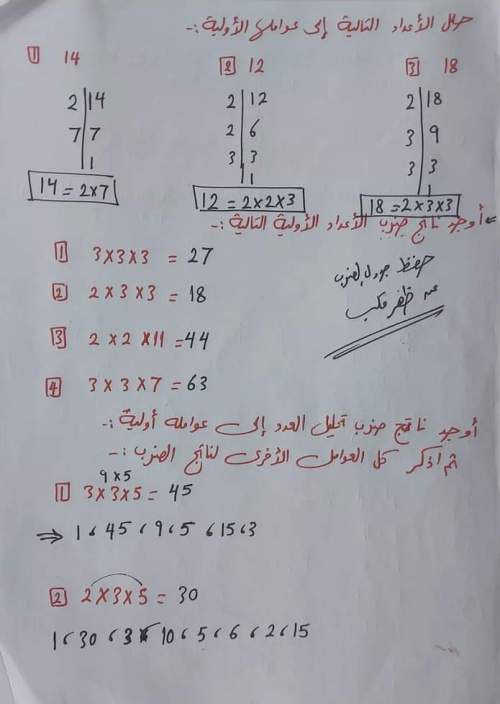 حلل الأعداد التالية إلى عواملها الأولية :-
1 14
2 | 14
7 | 7
1
14 = 2×7
2 12
2 | 12
2 | 6
3 | 3
1
12 = 2×2×3
3 18
2 | 18
3 | 9
3 | 3
1
18 = 2×3×3
أوجد ناتج ضرب الأعداد الأولية التالية :-
1 3×3×3 = 27
2 2×3×3 = 18
3 2×2×11 = 44
4 3×3×7 = 63
حفظ جدول الضرب
عن ظهر قلب
أوجد ناتج ضرب تحليل العدد إلى عوامله أولية :-
ثم أذكر كل العوامل الأخرى لناتج الضرب :-
9×5
1 3×3×5 = 45
⇒ 1، 45، 9، 5، 15، 3
2 2×3×5 = 30
1، 30، 3، 10، 5، 6، 2، 15